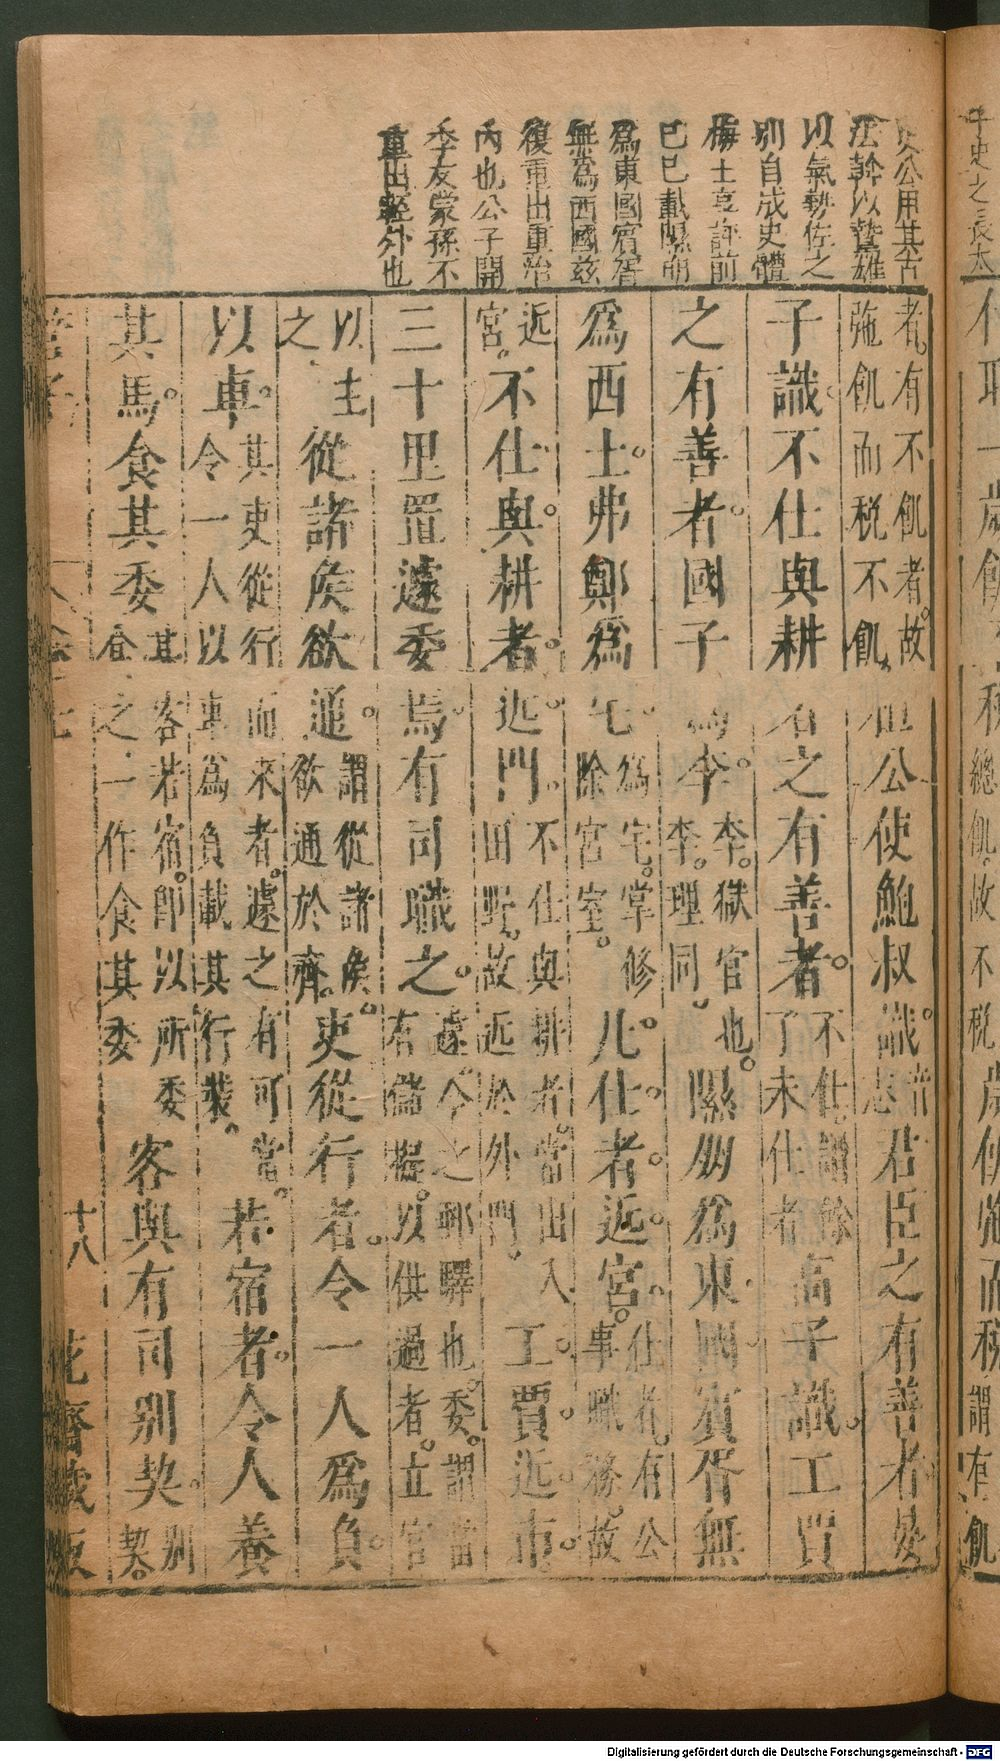 史公用其古
法幹以贄雄
以氣勢佐之
別自成史體
梅士享評前
已巳載隰朋
爲東國賓胥
無爲西國兹
復重出重治
內也公子開
季友蒙孫不
重出輕外也
者有不飢者故
弛飢而税不飢
桓公使鮑叔識
志
君臣之有善者晏
子識不仕與耕者之有善者
不仕謂餘
子未仕者
高子識工賈
之有善者國子爲李
李獄官也
李理同
隰朋爲東國賓胥無
爲西土弗鄭爲宅
爲宅掌修
除宮室
凡仕者近宮
仕者有公
事職務故
近
宮
不仕與耕者近門
不仕與耕者當出入
田野故近於外門
工賈近市
三十里置遽委焉有司職之
遽今之郵驛也委謂當
有儲擬以供過者立官
以主
之
從諸侯欲通
謂從諸侯
欲通於齊
吏從行者令一人爲負
以車
其吏從行而來者遽之有司當
令一人以車爲負載其行裝
若宿者令人養
其馬食其委
其客若宿卽以所委
食之一作食其委
客與有司别契
别
契
十八
花齋藏板
Digitalisierung gefördert durch die Deutsche Forschungsgemeinschaft - DFG